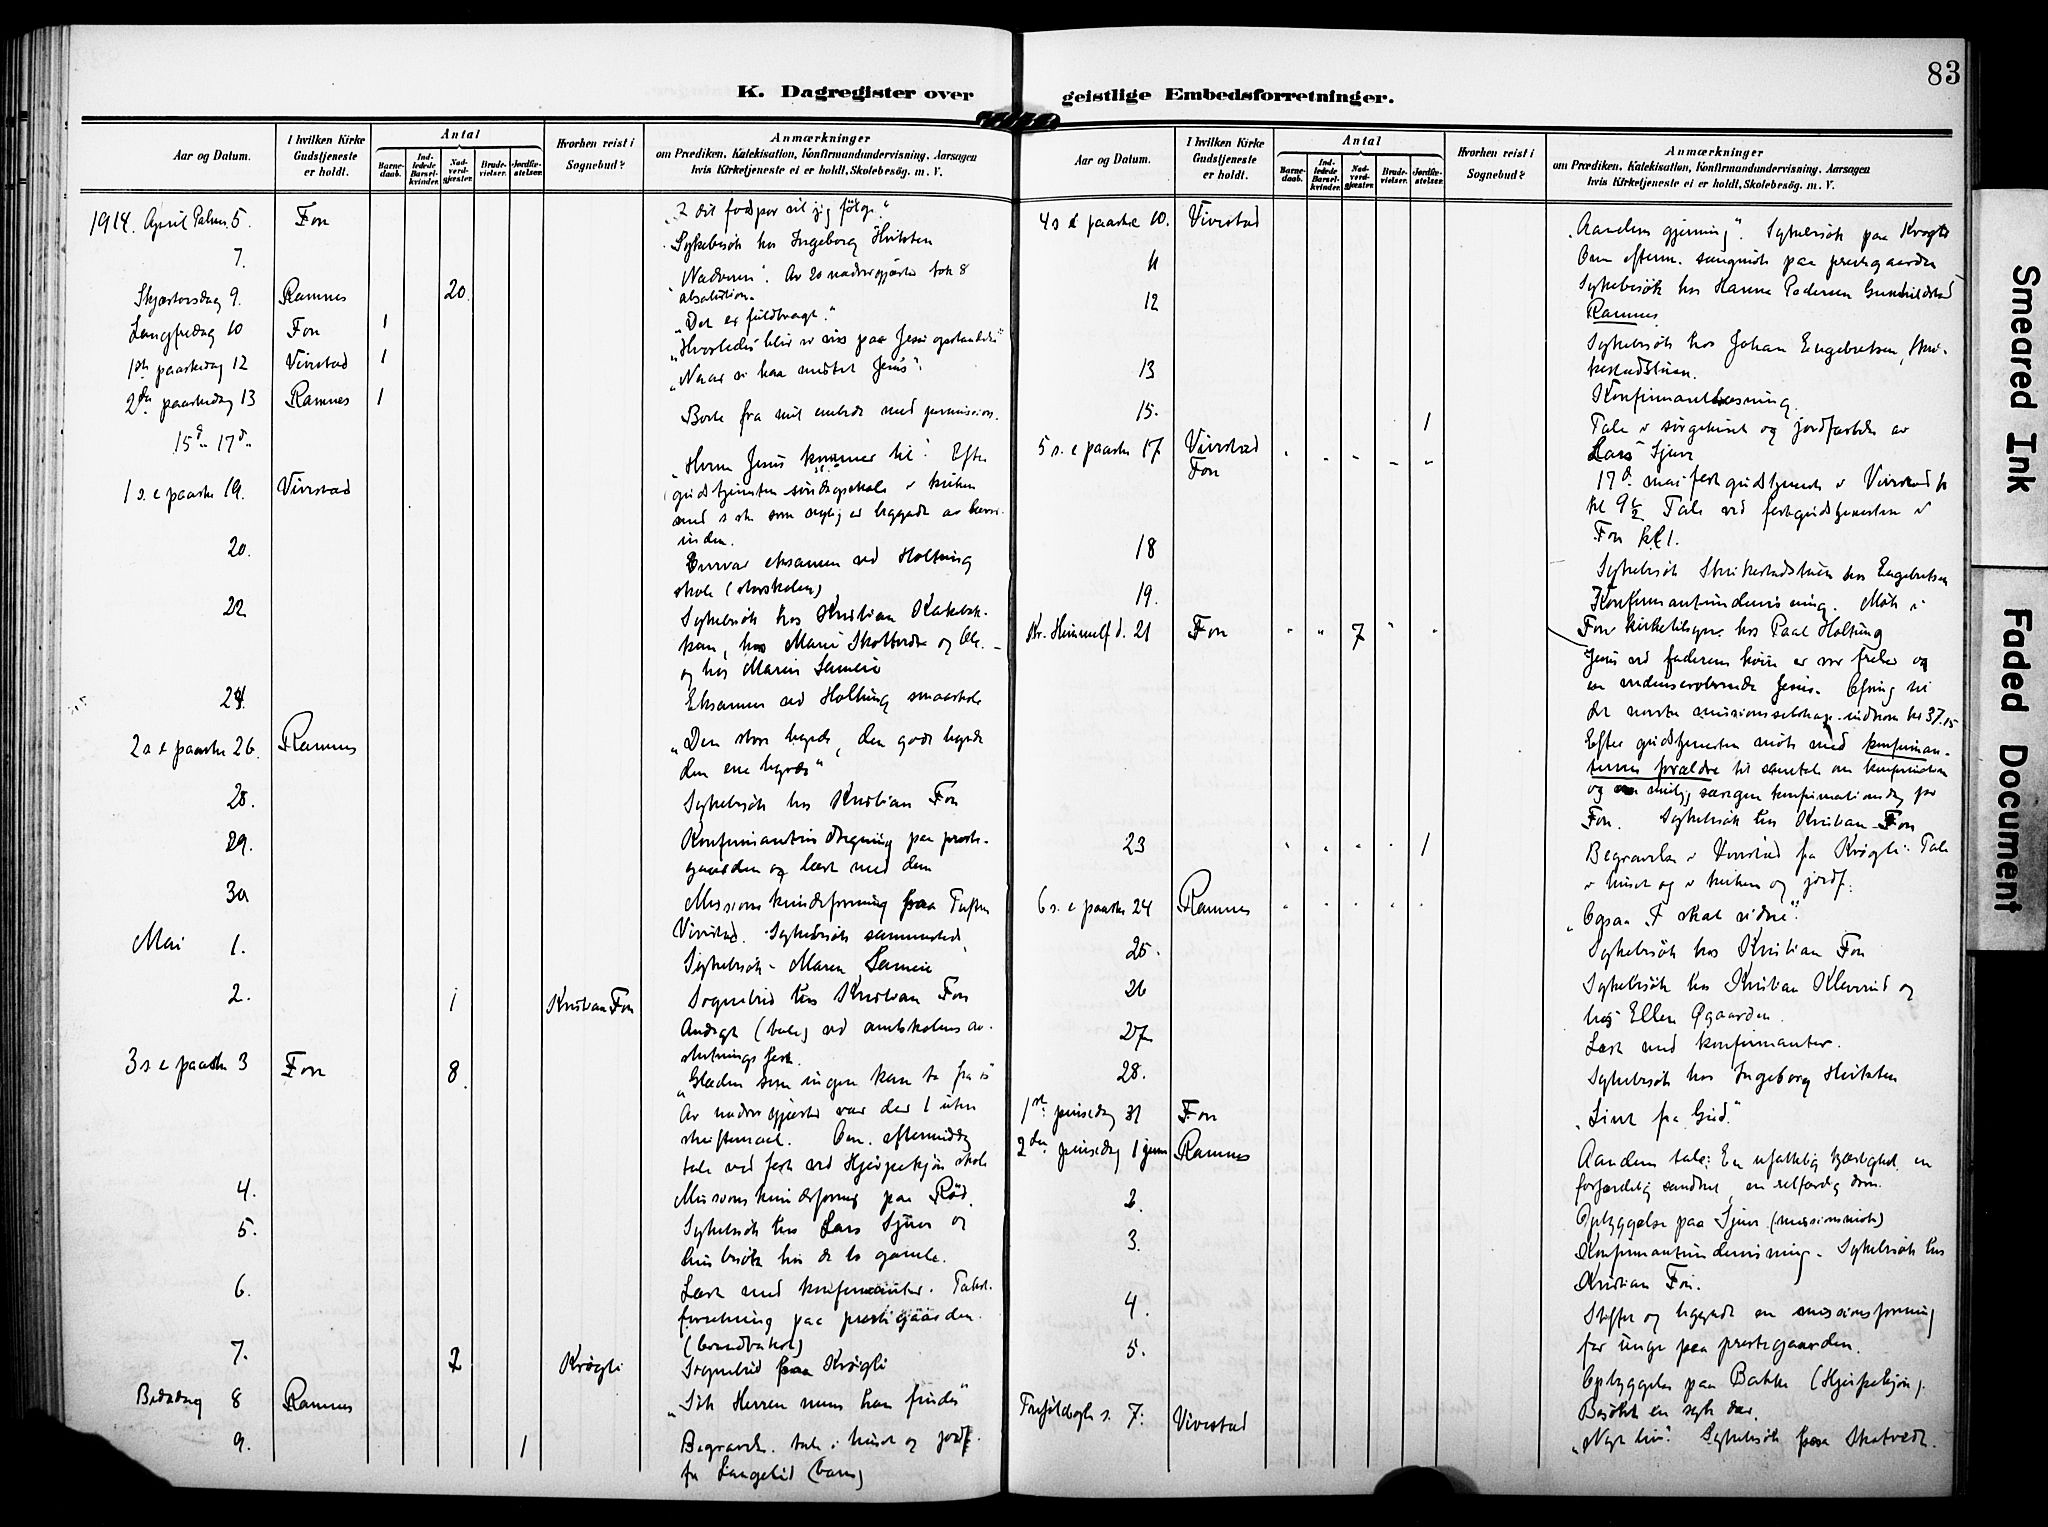 83
K. Dagregister over geistlige Embedsforretninger.
Aar og Datum.
I hvilken Kirke Gudstjeneste er holdt.
Antal
Barnedaab.
Indledede Barselkvinder.
Nadverdgjæster.
Brudevielser.
Jordfæstelser.
Hvorhen reist i Sognebud?
Anmærkninger
om Prædiken, Katekisation, Konfirmandundervisning, Aarsagen
hvis Kirketjeneste ei er holdt, Skolebesög. m. V.
1914. April Palmes 5. Fon
7. Sykebesök hos Ingeborg Hvitsten
Skjærtorsdag 9. Ramnes 20. "Nadveren". Av 20 nadvergjæster tok 8
absolution.
Langfredag 10 Fon 1 "Det er fuldbragt."
1ste paaskedag 12 Vivestad 1
2den paaskedag 13 Ramnes 1 "Naar vi har mistet Jesus".
15de 17de Borte fra mit embede med permission.
1 s. e paaske 19. Vivestad "Hvem Jesus kommer til". Efter
gudstjenesten söndagsskole i kirken
20. eksamen ved Holtung
skole (storskolen)
22 Sykebesök hos Kristian
og hos Maren
24 Eksamen ved Holtung smaaskole
2 s e paaske 26. Ramnes "Den store hyrde, den gode hyrde
den ene hyrde"
28. Sykebesök hos Kristian Fon
29. paa preste-
gaarden og læst med dem
30 Missionskvindeforening paa
Vivestad. Sykebesök sammesteds.
Mai 1. Sykebesök Maren
2. 1 Kristian Fon Sognebud hos Kristian Fon
Andagt (tale) ved amtskolens av-
slutningsfest.
3 s e paaske 3 Fon 8. "Glæden som ingen kan ta fra
Av nadvergjæster var der 1 uten
skriftemaal. Om eftermiddag
tale ved fest ved skole
4. Missionskvindeforening paa Röd.
5. Sykebesök hos Lars Sjuve og
husbesök hos de to gamle.
6. Læst med konfirmanter. Takst-
forretning paa prestegaarden.
7. 2 Krøgli Sognebud paa Krøgli
Bededag 8 Ramnes "Sök Herren mens han findes"
9. 1 Begravelse. tale i huset og jordf.
fra (barn)
Aar og Datum.
I hvilken Kirke Gudstjeneste er holdt.
Antal
Barnedaab.
Indledede Barselkvinder.
Nadverdgjæster.
Brudevielser.
Jordfæstelser.
Hvorhen reist i Sognebud?
Anmærkninger
om Prædiken, Katekisation, Konfirmandundervisning, Aarsagen
hvis Kirketjeneste ei er holdt, Skolebesög. m. V.
4 s e paaske 10. Vivestad "Aandens gjerning". Sykebesök paa Krøgli
Om efterm. paa prestegaarden
12 Sykebesök hos Hanna Pedersen
Ramnes
Sykebesök hos Johan Engebretsen,
13 Konfirmantlæsning.
15. 1 Tale i sörgehuset og jordfæstelse av
Lars Sjuve
5 s. e paaske 17 Vivestad
Fon
17de mai festgudstjeneste i Vivestad
kl 9 1/2 Tale ved festgudstjenesten i
Fon kl 1.
18 Sykebesök hos Engebretsen
19. Konfirmantundervisning. Möte i
Kr. Himmelf d. 21 Fon 7 Fon kirketilsyn hos Paal Holtung
Jesus ved faderens höire er vor frelser og
Jesus. Ofring til
det norske missionsselskap indkom kr 37.15
Efter gudstjenesten möte med konfirman-
ternes forældre til samtale om konfirmation
og særegen konfirmationsdag for
Fon. Sykebesök hos Kristian Fon
23 1 Begravelse i Vivestad fra Krøgli. Tale
i huset og i kirken og jordf.
6 s. e paaske 24 Ramnes "Ogsaa I skal vidne".
25. Sykebesök hos Kristian Fon
26 Sykebesök hos Kristian Kleverud og
hos Ellen Øgaarden.
27 Læst med konfirmanter.
28. Sykebesök hos Ingeborg Hvitsten
1ste pinsedag 31 Fon "Livet fra Gud."
2den pinsedag 1 juni Ramnes Aandens tale: En ufattelig kjærlighet, en
forfærdelig sandhet, en retfærdig dom.
2. Opbyggelse paa Sjuve (missionsmöte)
3. Konfirmantundervisning. Sykebesök hos
Kristian Fon.
4. Stiftet og begyndt en missionsforening
for unge paa prestegaarden.
5. Opbyggelse paa Bakke
Besökt en syk der.
Trefoldigh s. 7. Vivestad "Nyt liv". Sykebesök paa Skatvedt.
Smeared Ink
Faded Document